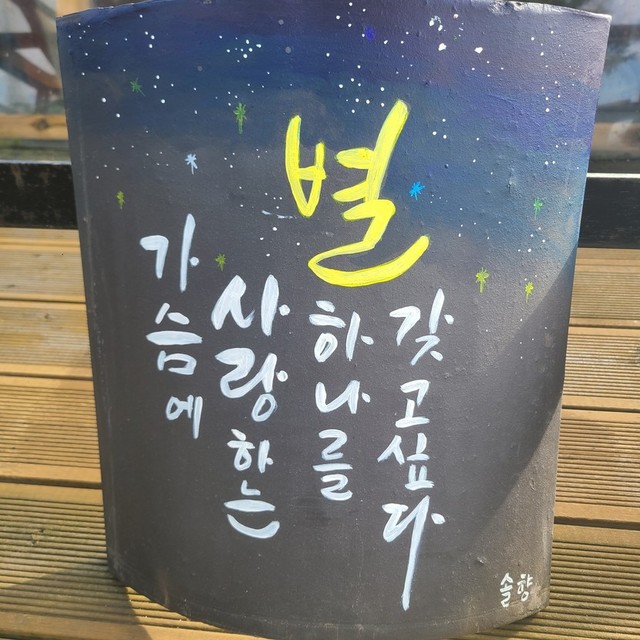 가슴에
사랑하는
별
하나를
갖고싶다
솔향